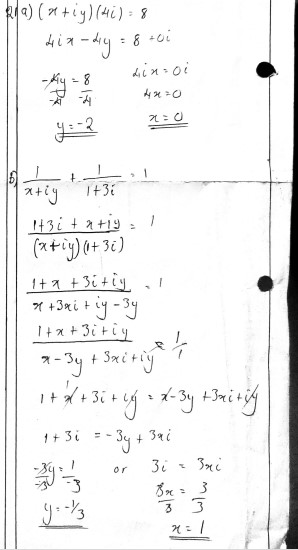 2(a) (x+iy)(4i) = 8
4ix - 4y = 8 + 0i
-4y/-4 = 8/-4    4ix = 0i
4x = 0
y = -2    x = 0
b) 1/(x+iy) + 1/(1+3i) = 1
(1+3i + x+iy)/((x+iy)(1+3i)) = 1
(1+x + 3i+iy)/(x+3xi+iy-3y) = 1
(1+x+3i+iy)/(x-3y+3xi+iy) = 1/1
1+x+3i+iy = x-3y+3xi+iy
1+3i = -3y+3xi
-3y/-3 = 1/-3    or    3i = 3xi
3x/3 = 3/3
y = -1/3    x = 1